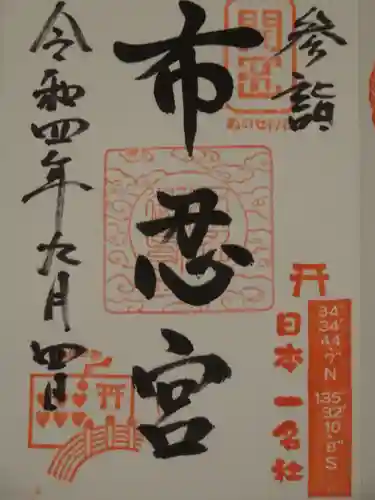 参詣
開运
市忍宮
令和四年九月四日
日本一名社
34°
34'
44
.7"
N
135°
32'
10
.8"
S